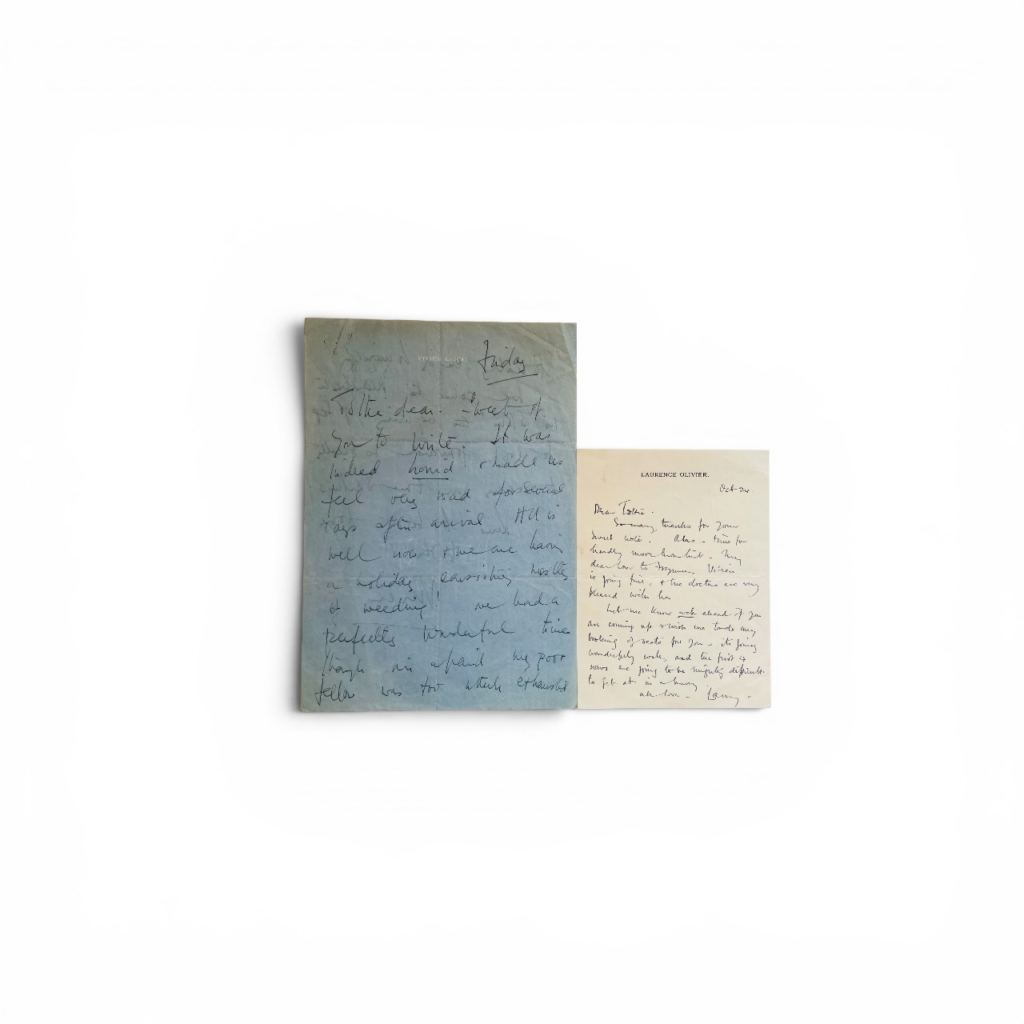 Friday
Tolkie dear. Sweet of
you to write. It was
indeed horrid & made us
feel very sad for several
days after arrival. All is
well now & we are having
a holiday consisting mostly
of weeding! We had a
perfectly wonderful time
though I'm afraid my poor
fellow was too utterly exhausted
LAURENCE OLIVIER.
Oct. 24
Dear
So many thanks for your
sweet note. Alas - time for
hardly more than hint. My
dear love to Vivien
is going fine, & the doctors are very
pleased with her
Let me know well ahead if you
are coming up & wish me to do any
booking of seats for you - it's going
wonderfully well, and the first
rows are going to be mighty difficult
to get at in a hurry
all love - Larry -